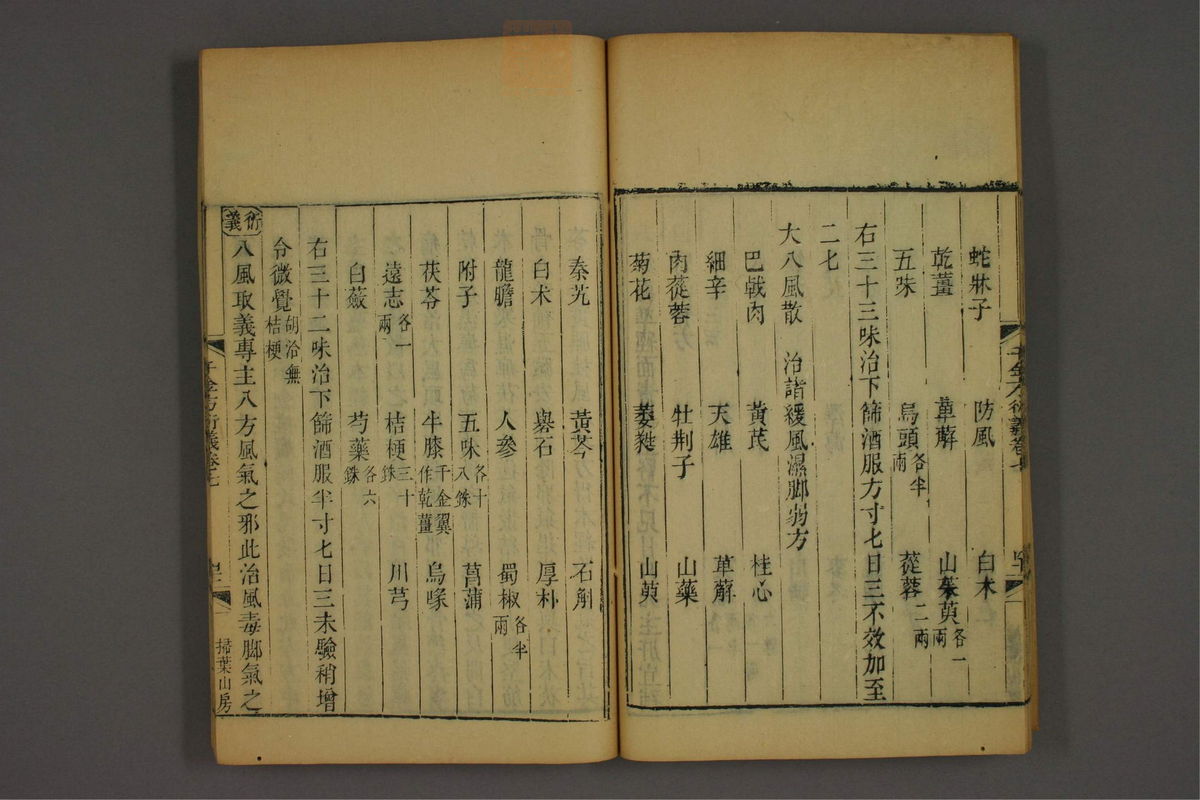 蛇牀子 防風 白术
乾薑 萆薢 山茱萸各一兩
五味 烏頭各半兩 蓯蓉二兩
右三十三味治下篩酒服方寸匕日三不效加至
二七
大八風散 治諸緩風濕脚弱方
巴戟肉 黃芪 桂心
細辛 天雄 萆薢
肉蓯蓉 牡荆子 山藥
菊花 萎蕤 山萸
秦艽 黃芩 石斛
白术 礜石 厚朴
龍膽 人參 蜀椒各半兩
附子 五味各十八銖 菖蒲
茯苓 牛膝千金翼作乾薑 烏喙
遠志各一兩 桔梗三十銖 川芎
白蘞 芍藥各六銖
右三十二味治下篩酒服半寸匕日三未驗稍增
令微覺胡洽無桔梗
衍義 八風取義專主八方風氣之邪此治風毒脚氣之
千金方衍義卷七
掃葉山房